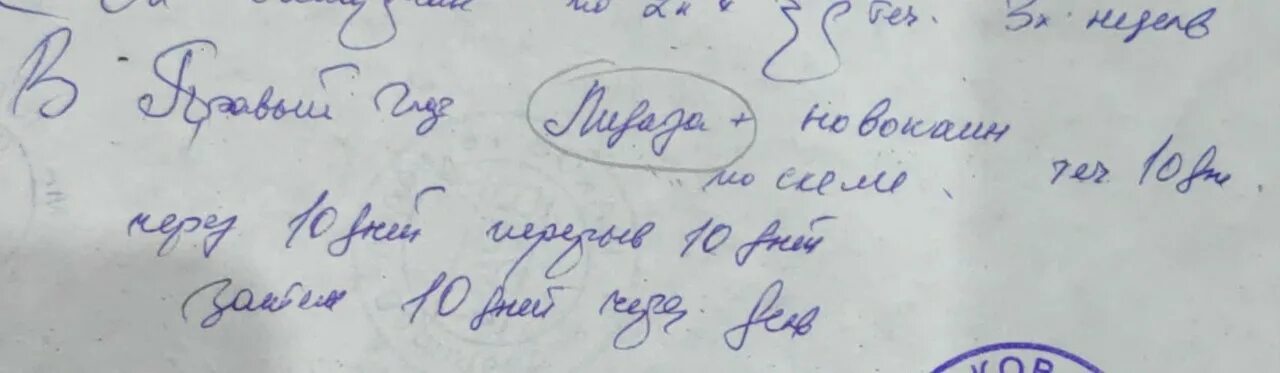 по 2к теч. 3х недель
В Правый глаз Лидаза + новокаин
по схеме теч 10 дн.
через 10 дней перерыв 10 дней
затем 10 дней через день
КОВ